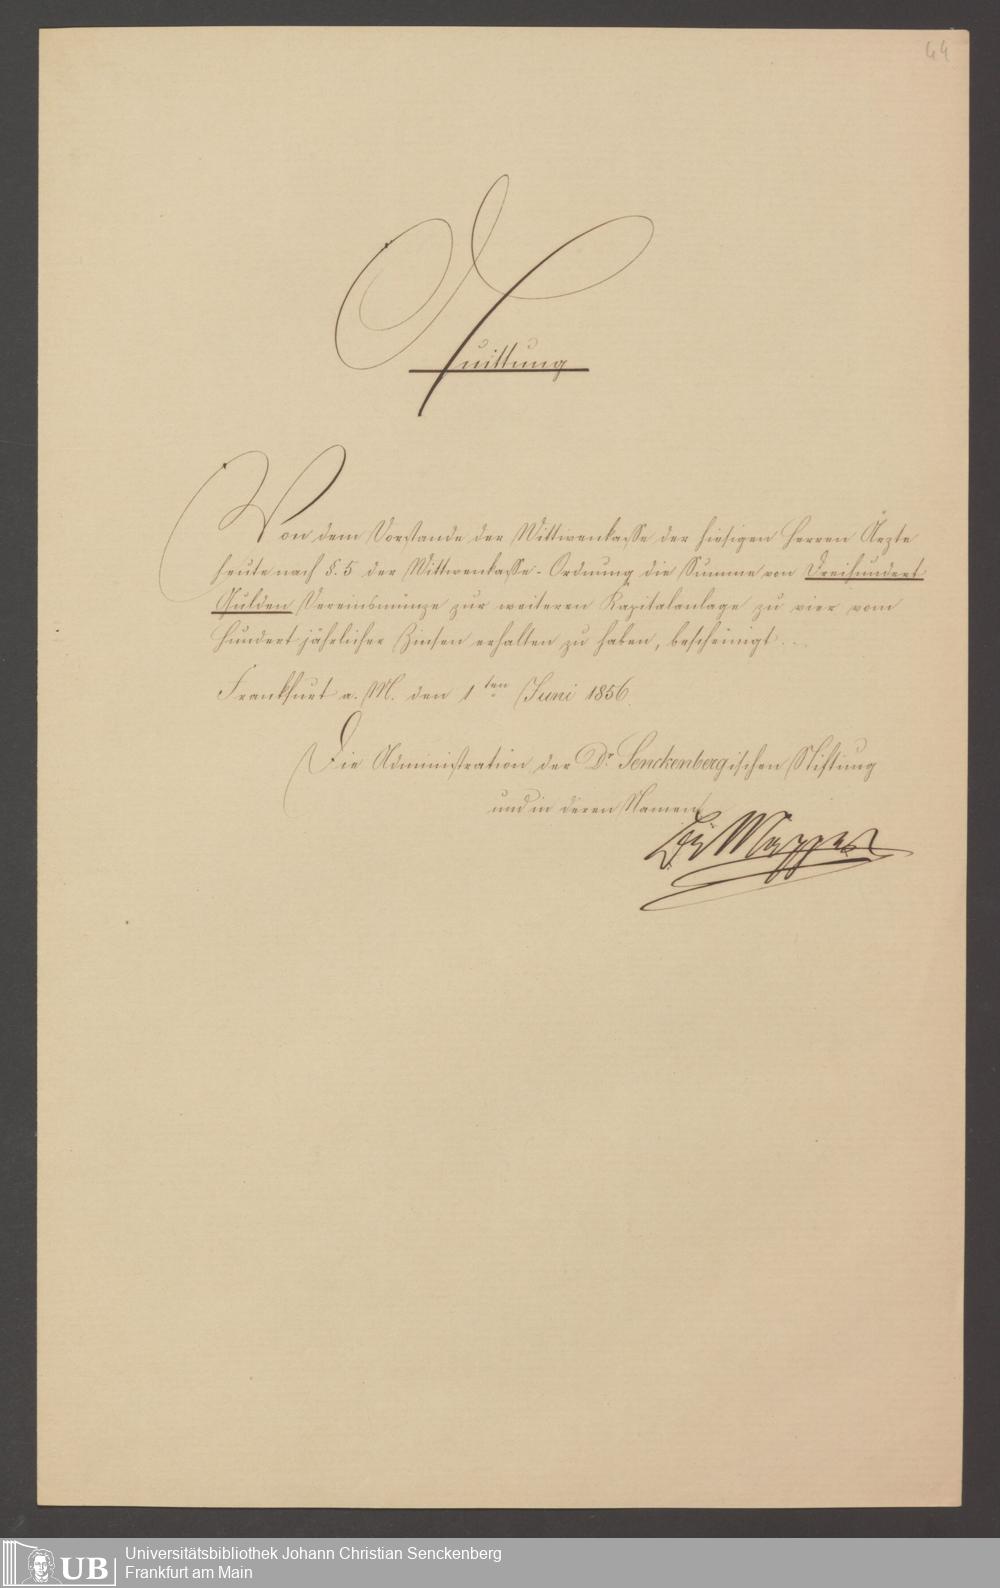 44
Quittung
Von dem Vorstande der Wittwenkasse der hiesigen Herren Ärzte
heute nach §. 5 der Wittwenkasse-Ordnung die Summe von Dreihundert
Gulden Vereinsmünze zur weiteren Kapitalanlage zu vier vom
Hundert jährlicher Zinsen erhalten zu haben, bescheinigt...
Frankfurt a. M. den 1ten Juni 1856.
Die Administration der Dr. Senckenbergischen Stiftung
und in deren Namen
Dr Mappes
UB
Universitätsbibliothek Johann Christian Senckenberg
Frankfurt am Main